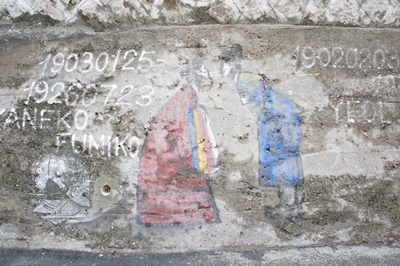 19030125-
19260723
ANEKO
FUMIKO
19020203
YEOL